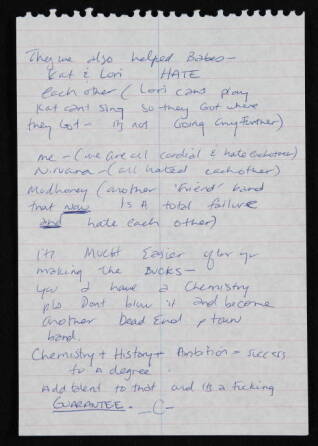 They've also helped Babes—
Kat & Lori HATE
each other (Lori cant play
Kat cant sing so they Got where
they Got— its not Going Any Further)
me—(we are all cordial & hate eachother)
Nirvana—(all hated eachother)
Mudhoney (another "Friend" band
that Now Is A total failure
and hate each other)
Its Much Easier after yr
making the BUCKS—
you 2 have a Chemistry
pls Dont blow it and become
another Dead End town
band.
Chemistry + History + Ambition = success
to A degree
Add talent to that and its a fucking
GUARANTEE. —C—